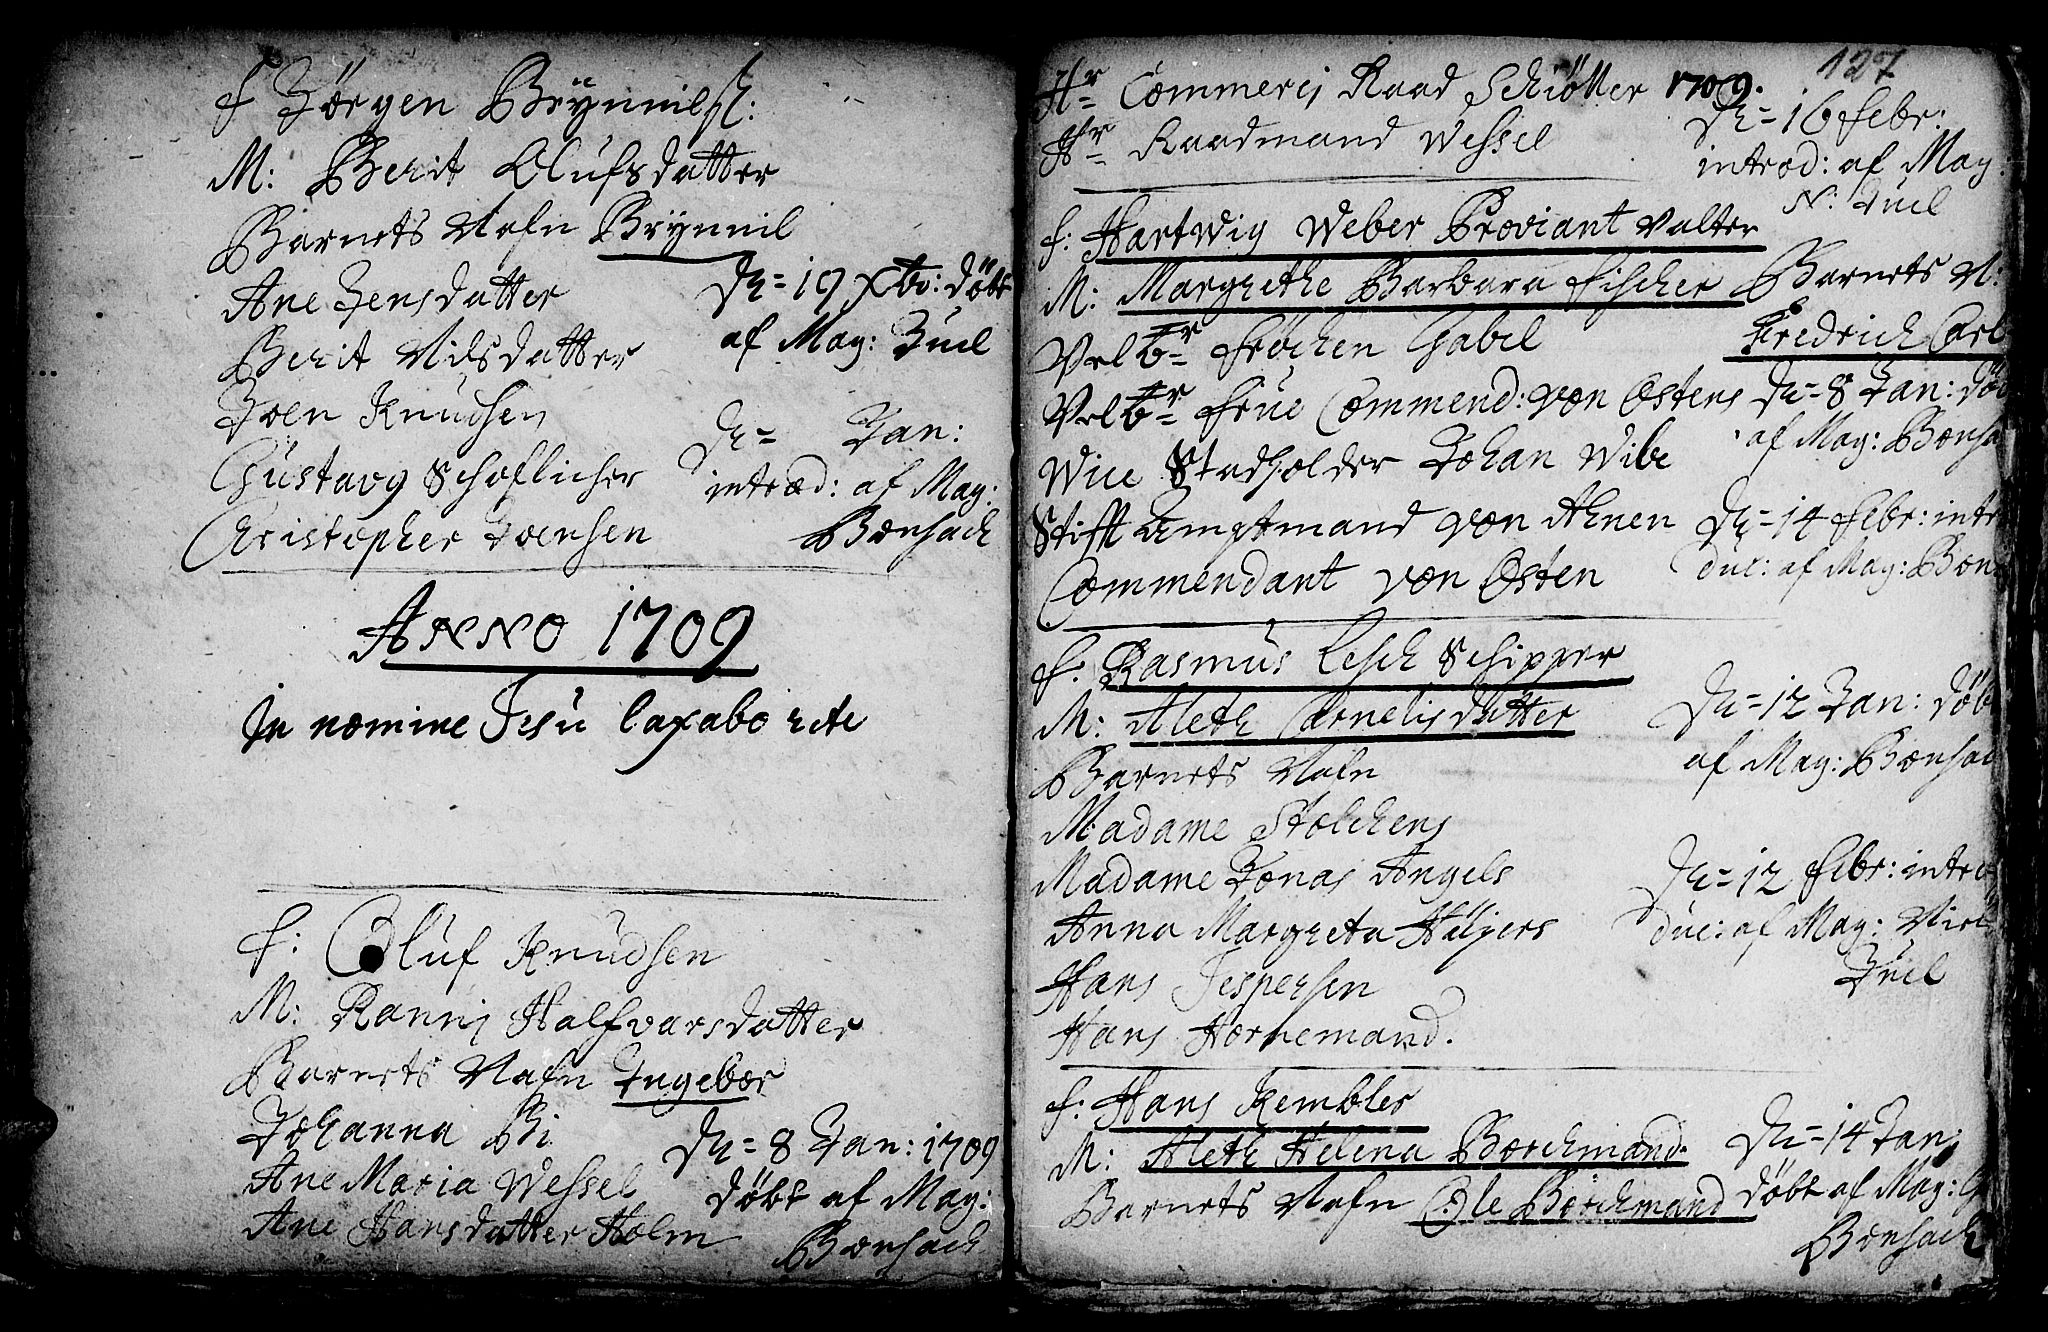 F Jörgen Brynnils:
M: Berit Olufsdatter
Barnets Nafn Brynnil
Ane Jensdatter
Berit Nilsdatter
Joen Knudsen
Gustavg Schoflicher
Christopher Joensen
D= 19 Xbr: döbt
af Mag: Juel
D= Jan:
introd: af Mag:
Bonsach
ANNO 1709
In nomine Jesu
F: Oluf Knudsen
M: Ranni Halfvarsdatter
Barnets Nafn Ingebor
Johanna Bi
Ane Maria Wessel
Ane Hansdatter Holm
D= 8 Jan: 1709
döbt af Mag:
Bonsach
127
Hr Commerci Raad Schiötter 1709.
Hr Raadmand Wessel
D= 16 Febr:
introd: af Mag:
N: Juel
F: Hartwig Weber Proviant Valter
M: Margrethe Barbara Fischer Barnets N:
Fredrich Carl
Velbr Fröchen Gabel
Velbr Frue Commend: von Ostens
Wice Stadholder Johan Wibe
Stifft Amptmand von Ahnen
Commendant von Osten
D= 8 Jan: dö
af Mag: Bonsa
D= 14 Febr: intro
duc: af Mag: Bon
F: Rasmus Lesch Schipper
M: Aleth Cornelisdatter
Barnets Nafn
Madame Stolchens
Madame Jonas Angels
Anna Margreta Hüjers
Hans Jespersen
Hans Hornemand.
D= 12 Jan: döb
af Mag: Bonsac
D= 12 Febr: intro
duc: af Mag: Niel
Juel
F: Hans Kembler
M: Aleth Helena Borchmand
Barnets Nafn Ole Borchmand
D= 14 Jan:
döbt af Mag: G
Bonsach